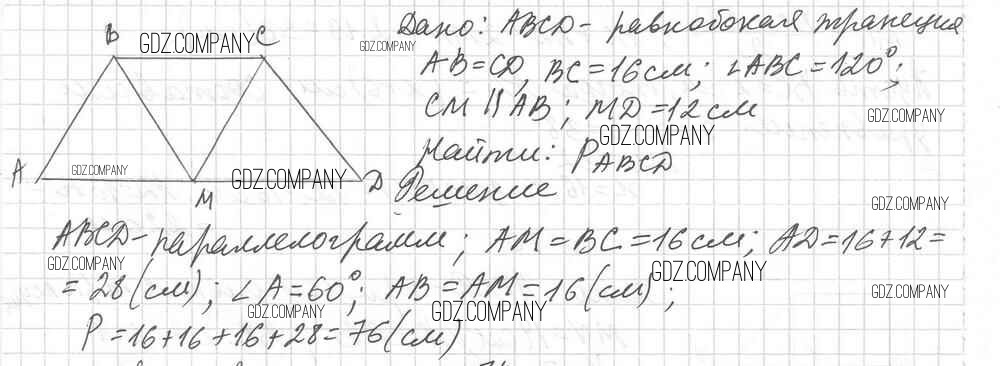 B
C
GDZ.COMPANY
GDZ.COMPANY
Дано: ABCD - равнобокая трапеция
AB=CD, BC=16см; ∠ABC=120°;
CM || AB; MD=12см
GDZ.COMPANY
GDZ.COMPANY
Найти: P ABCD
A
GDZ.COMPANY
M
GDZ.COMPANY
D
Решение
GDZ.COMPANY
ABCD - параллелограмм; AM=BC=16см; AD=16+12=
GDZ.COMPANY
GDZ.COMPANY
=28(см); ∠A=60°; AB=AM=16(см);
GDZ.COMPANY
GDZ.COMPANY
GDZ.COMPANY
P=16+16+16+28=76(см)